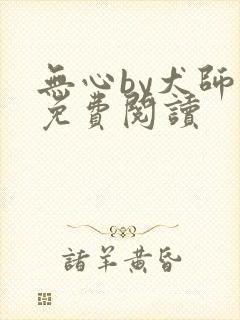 無心by犬師
免費閱讀
諸羊黃昏